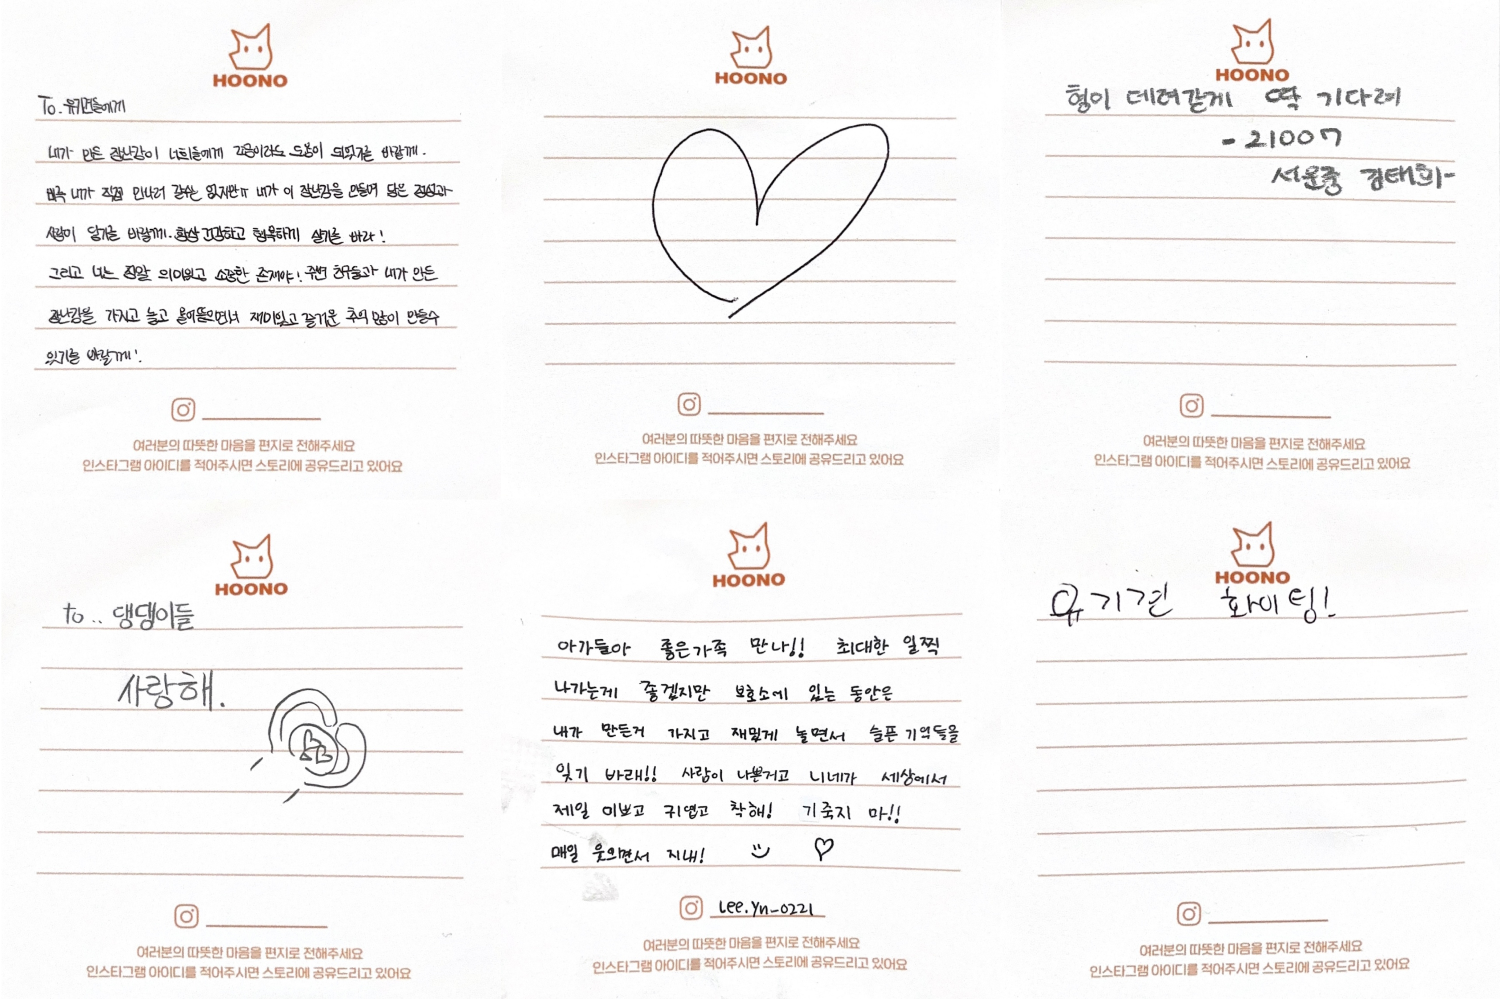 HOONO
To. 유기견들에게
내가 만든 장난감이 너희들에게 조금이라도 도움이 되었기를 바랄께.
비록 내가 직접 만나러 갈수는 없지만ㅠ 내가 이 장난감을 만들며 담은 정성과
사랑이 닿기를 바랄께. 항상 건강하고 행복하게 살기를 바라!
그리고 너는 정말 의미있고 소중한 존재야! 주변 친구들과 내가 만든
장난감을 가지고 놀고 물어뜯으면서 재미있고 즐거운 추억 많이 만들수
있기를 바랄께!
여러분의 따뜻한 마음을 편지로 전해주세요
인스타그램 아이디를 적어주시면 스토리에 공유드리고 있어요
HOONO
여러분의 따뜻한 마음을 편지로 전해주세요
인스타그램 아이디를 적어주시면 스토리에 공유드리고 있어요
HOONO
형이 데려갈게 딱 기다려
- 21007
서운중 김태희-
여러분의 따뜻한 마음을 편지로 전해주세요
인스타그램 아이디를 적어주시면 스토리에 공유드리고 있어요
HOONO
to.. 댕댕이들
사랑해.
여러분의 따뜻한 마음을 편지로 전해주세요
인스타그램 아이디를 적어주시면 스토리에 공유드리고 있어요
HOONO
아가들아 좋은가족 만나!! 최대한 일찍
나가는게 좋겠지만 보호소에 있는 동안은
내가 만든거 가지고 재밌게 놀면서 슬픈 기억들을
잊기 바래!! 사람이 나쁜거고 니네가 세상에서
제일 이쁘고 귀엽고 착해! 기죽지 마!!
매일 웃으면서 지내!
lee.yn_0221
여러분의 따뜻한 마음을 편지로 전해주세요
인스타그램 아이디를 적어주시면 스토리에 공유드리고 있어요
HOONO
유기견 화이팅!
여러분의 따뜻한 마음을 편지로 전해주세요
인스타그램 아이디를 적어주시면 스토리에 공유드리고 있어요